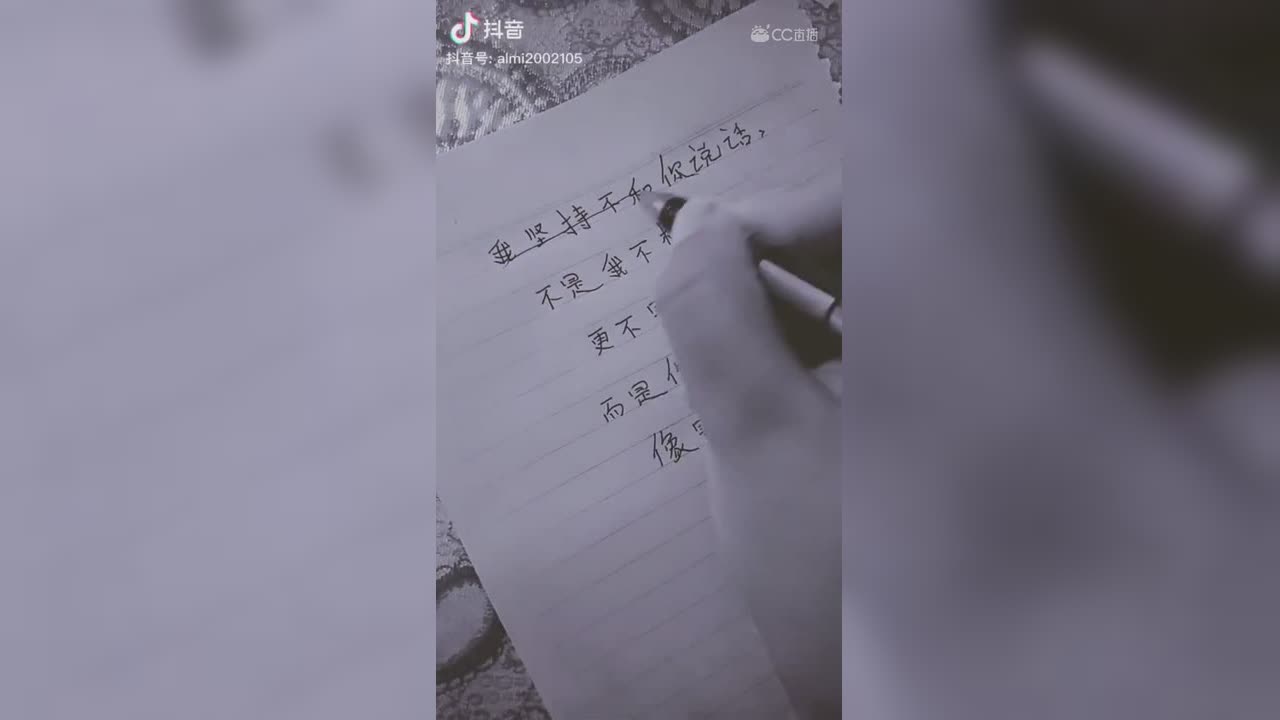 抖音
抖音号: almi2002105
CC直播
我坚持不和你说话,
不是我不
更不
而是
像